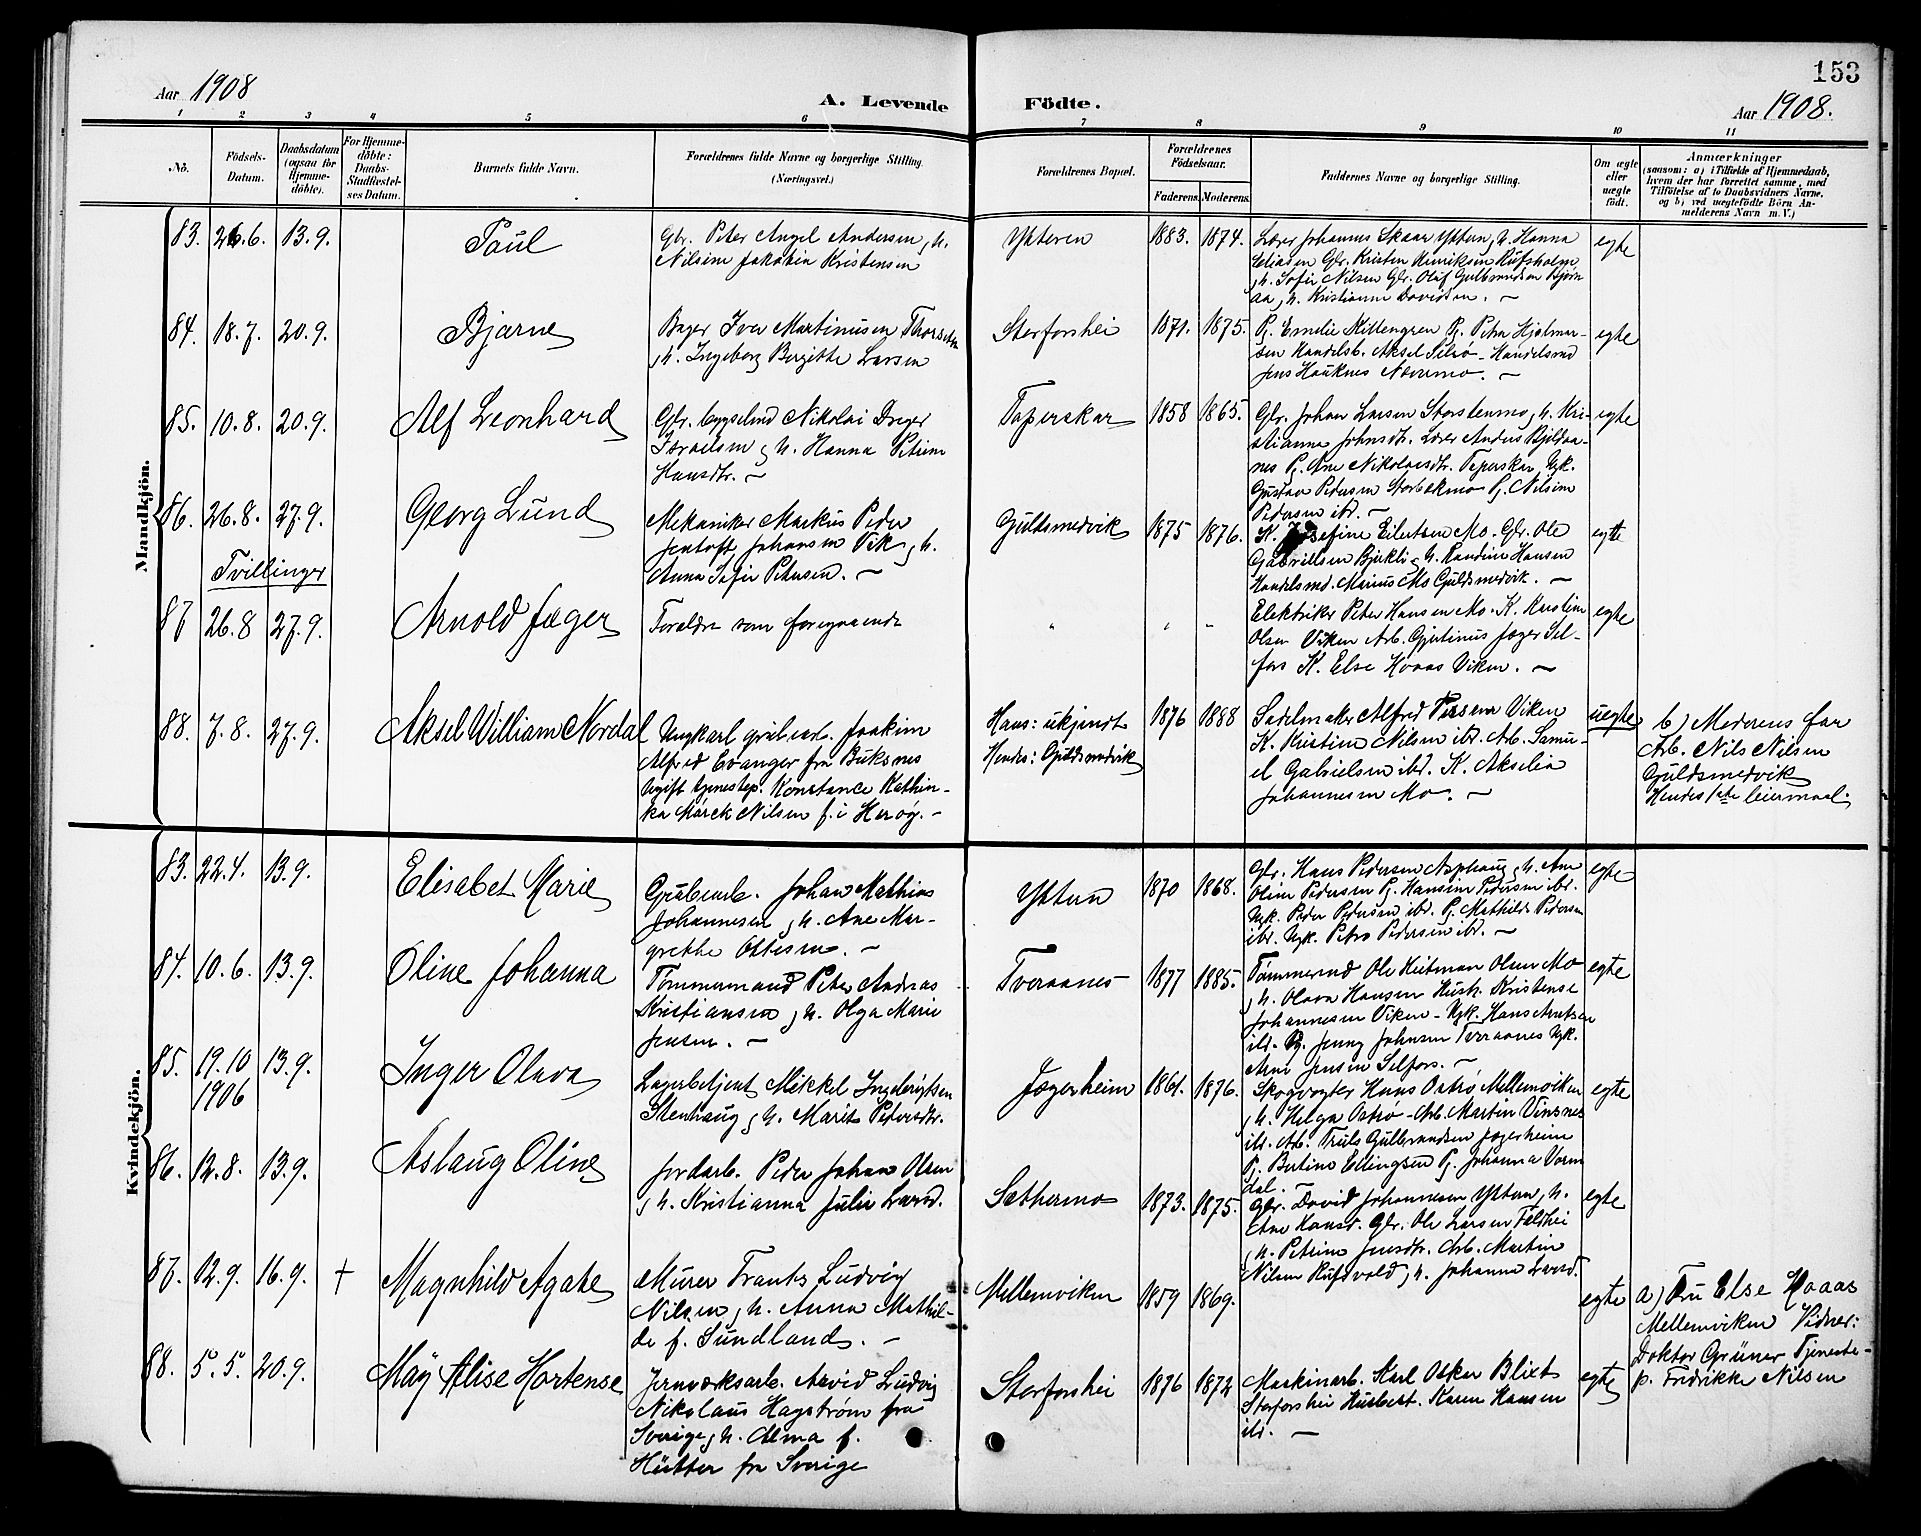 153
Aar 1908
A. Levende Födte.
Aar 1908.
1 2 3 4 5 6 7 8 9 10 11
No.
Födsels-
Datum.
Daabsdatum
(ogsaa for
Hjemme-
döbte).
For Hjemme-
døbte:
Daabs-
Stadfæstel-
ses Datum.
Barnets fulde Navn.
Forældrenes fulde Navne og borgerlige Stilling.
(Næringsvei.)
Forældrenes Bopæl.
Forældrenes
Födselsaar.
Faderens. Moderens.
Faddernes Navne og borgerlige Stilling.
Om ægte
eller
uægte
født.
Anmærkninger
(saasom: a) i Tilfælde af Hjemmedaab,
hvem der har forrettet samme, med
Tilföielse af to Daabsvidners Navne,
og b) ved uægtefödte Börn An-
melderens Navn m. V.)
Mandkjön.
83. 26.6. 13.9. Paul
Gbr. Peter Angel Andersen, h.
Nilsine Jakobia Kristensen
Ytteren 1883. 1874.
Lærer Johannes Skaar Yttern, h. Hanna
Eliasen Gbr. Kristen Henriksen Rufsholm
h. Sofie Nilsen Gbr. Oluf Gulbrandsen Bjørn
aa, h. Kristianne Davidsen. —
egte
84. 18.7. 20.9. Bjarne
Bager Iver Martinusen Thorsen
h. Ingeborg Birgitte Larsen
Storforshei 1871. 1875.
Pj. Emelie Killengren Pj. Petra Hjalmar-
sen Handelsb. Aksel Selsø - Handelsmd
Jens Hauknes Nævermo. —
egte
85. 10.8. 20.9. Alf Leonhard
Gbr. bygselmd Nikolai Dreyer
Israelsen, h. Hanna Petrine
Hansdtr. —
Taperskar 1858 1865.
Gbr. Johan Larsen Storstenmo, h. Kri-
stianna Johnsdtr. Lærer Anders Bjeldaa-
nes Pj. Ane Nikolaisdtr. Teperskar, Ugk.
Gustav Pedersen Storbækmo Pj. Nilsine
Pedersen ibd. —
egte
86. 26.8. 27.9. Georg Lund
Mekaniker Markus Peder
Jentoft Johansen Vik, h.
Anna Sofie Petersen. —
Guldsmedvik 1875 1876.
K. Josefine Eilertsen Mo. Gbr. Ole
Gabrielsen Bjerkli, h. Randine Hansen
Handelsmd. Marius Mo Guldsmedvik. —
egte
Tvillinger
87 26.8 27.9. Arnold Jæger
Forældre som foregaaende
" " "
Elektriker Peter Hansen Mo. K. Karoline
Olsen Viken Arb. Gjertinus Jæger Sel-
fors K. Else Hovas Viken. —
egte
88. 7.8. 27.9. Aksel William Nordal
Ungkarl grubearb. Joakim
Alfred Evanger fra Buksnes
Ugift tjenestep. Konstance Kathin-
ka Mørck Nilsen f. i Herøy. —
Hans: ukjendt
Hendes: Guldsmedvik
1876 1888
Sadelmaker Alfred Iversen Viken
K. Kristine Nilsen ibd. Arb. Samu-
el Gabrielsen ibd. K. Akselia
Johannesen Mo. —
uegte
b) Moderens far
Arb. Nils Nilsen
Guldsmedvik
Hendes 1ste leiermaal.
Kvindekjön.
83. 22.4. 13.9. Elisabet Marie
Grubearb. Johan Mathias
Johannesen, h. Ane Mar-
grethe Ottesen. —
Yttern 1870 1868.
Gbr. Hans Pedersen Asphaug, h. Ane
Oline Pedersen Pj. Hansine Pedersen ibd.
Ugk. Peder Pedersen ibd. Pj. Mathilde Pedersen
ibd. Ugk. Petro Pedersen ibd. —
egte
84. 10.6. 13.9. Oline Johanna
Tømmermand Peter Andreas
Kristiansen, h. Olga Marie
Jensen. —
Tveraanes 1877 1885.
Tømmermd Ole Heitman Olsen Mo
h. Olava Hansen Husk. Kristense
Johannesen Viken - Ugk. Hans Arntsen
ibd. Pj. Jenny Johnsen Tveraanes Ugk.
Arne Jensen Selfors. —
egte
85. 19.10 1906 13.9. Inger Olava
Lagerbetjent Mikkel Ingebrigtsen
Stenhaug, h. Marit Pedersdtr.
Jægerheim 1861. 1876.
Skogvogter Hans Ostrø Mellemviken
h. Helga Ostrø - Arb. Martin Vinsnes
ibd. Arb. Truls Gulbrandsen Jægerheim
Pj. Berlino Ellingsen Pj. Johanna Vorm
dal. —
egte
86. 12.8. 13.9. Aslaug Oline
Jordarb. Peder Johan Olsen
h. Kristianna Julie Larsd.
Sæthermo 1873. 1875.
Gbr. David Johannesen Yttern, h.
Ane Hansd. Gbr. Ole Larsen Feldhei
h. Petrine Jensdtr. Arb. Martin
Nilsen Rufsvold, h. Johanna Larsd.
egte
87. 12.9. 16.9. † Magnhild Agate
Murer Frants Ludvig
Nilsen, h. Anna Mathil-
de f. Sundland. —
Mellemviken 1859 1869.
egte
a) Fru Else Hovas
Mellemviken Vidner:
Doktor Grüner Tjeneste-
p. Fredrikke Nilsen
88. 5.5. 20.9. Mäy Alise Hortense
Jernværksarb. Arvid Ludvig
Nikolaus Hagstrøm fra
Sverige, h. Alma f.
Hütter fra Sverige
Storforshei 1876 1872
Maskinarb. Karl Oskar Blixt
Storforshei Husbest. Karen Hansen
ibd. —
egte